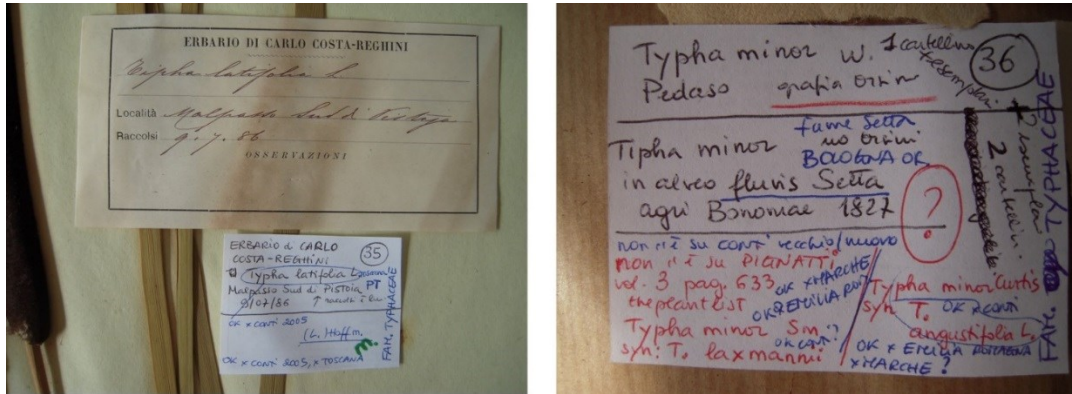 ERBARIO DI CARLO COSTA-REGHINI
Tipha latifolia L
Località Malpasso Sud di Pistoja
Raccolsi 9.7.86
OSSERVAZIONI
ERBARIO di CARLO
COSTA-REGHINI
35
Typha latifolia L.
Malpasso Sud di Pistoia PT
9/07/86
OK x CONTI 2005
(L.) Hoffm.
OK x CONTI 2005, x TOSCANA
FAM. TYPHACEAE
Typha minor W. 1 cartellino
x esemplari
36
Pedaso grafia Orsini
Tipha minor fiume Setta
no Orsini
BOLOGNA OK
in alveo fluvis Setta
agri Bononiae 1827
?
2 cartellini
FAM. TYPHACEAE
non c'è su conti vecchio/nuovo
non c'è su PIGNATTI
vol. 3 pag. 633 OK x MARCHE
OK x EMILIA ROM
the plant list
Typha minor Sm.
OK CONTI?
syn: T. laxmannii
Typha minor Curtis
syn T. OK x conti
angustifolia L.
OK x EMILIA ROMAGNA
x MARCHE ?